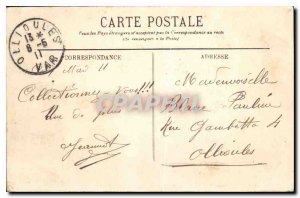 CARTE POSTALE
Tous les Pays étrangers n'acceptent pas la Correspondance au recto
(Se renseigner à la Poste)
OLLIOULES
13 *
8 -5
11
VAR
CORRESPONDANCE
ADRESSE
Mai 11
Collectionnes-Vous!!!
Une de plus
Jeannot
Mademoiselle
Pauline
Rue Gambetta 4
Ollioules